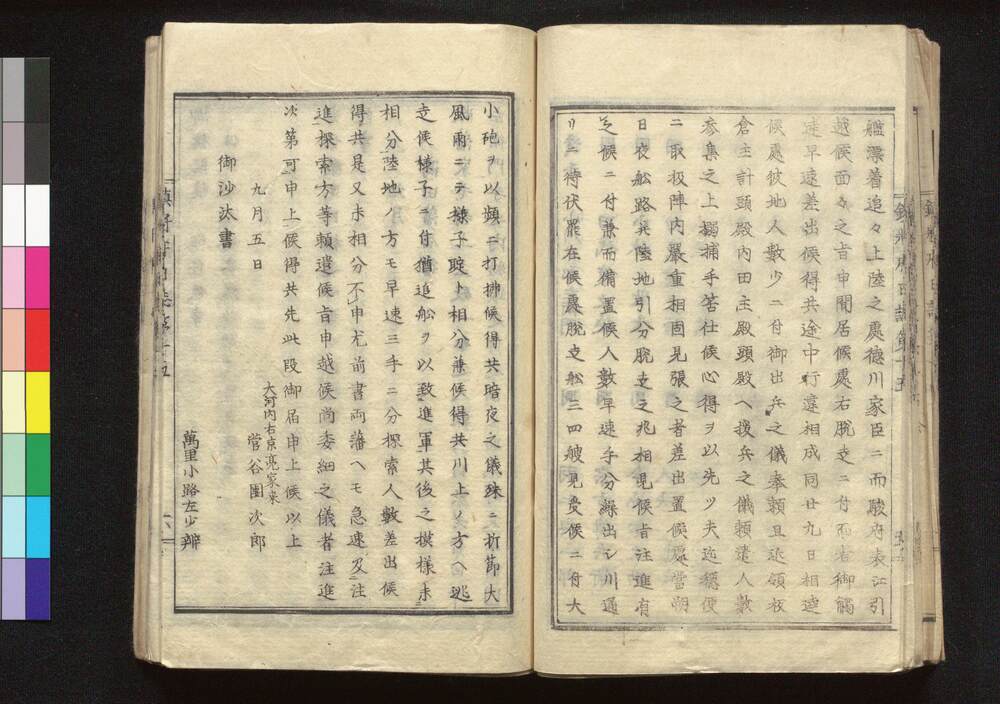 艦漂着追々上陸之處德川家臣ニ而駿府表江引
越候面々之旨申聞居候處右脱走ニ付而者御觸
達早速差出候得共途中行違相成同廿九日相達
候處彼地人數少ニ付御出兵之儀奉頼且近領板
倉主計頭殿内田主殿頭殿へ援兵之儀頼遣人數
參集之上搦捕手筈仕候心得ヲ以先ツ夫迄穏便
ニ取扱陣内嚴重相固見張之者差出置候處當朔
日夜船路共陸地引分脱走之兆相見候旨注進有
之候ニ付兼而備置候人數早速手分繰出シ川通
リ待伏罷在候處脱走船三四艘見受候ニ付大
小砲ヲ以頻ニ打拂候得共暗夜之儀殊ニ折節大
風雨ニテ様子聢ト相分兼候得共川上ノ方へ逃
走候様子ニ付猶追船ヲ以致進軍其後之模様未
相分陸地ノ方モ早速三手ニ分探索人數差出候
得共是又未相分不申尤前書両藩ヘモ急速及注
進探索方等頼遣候旨申越候尚委細之儀者注進
次第可申上候得共先此段御届申上候以上
大河内右京亮家来
九月五日
菅谷圍次郎
御沙汰書
萬里小路左少辨